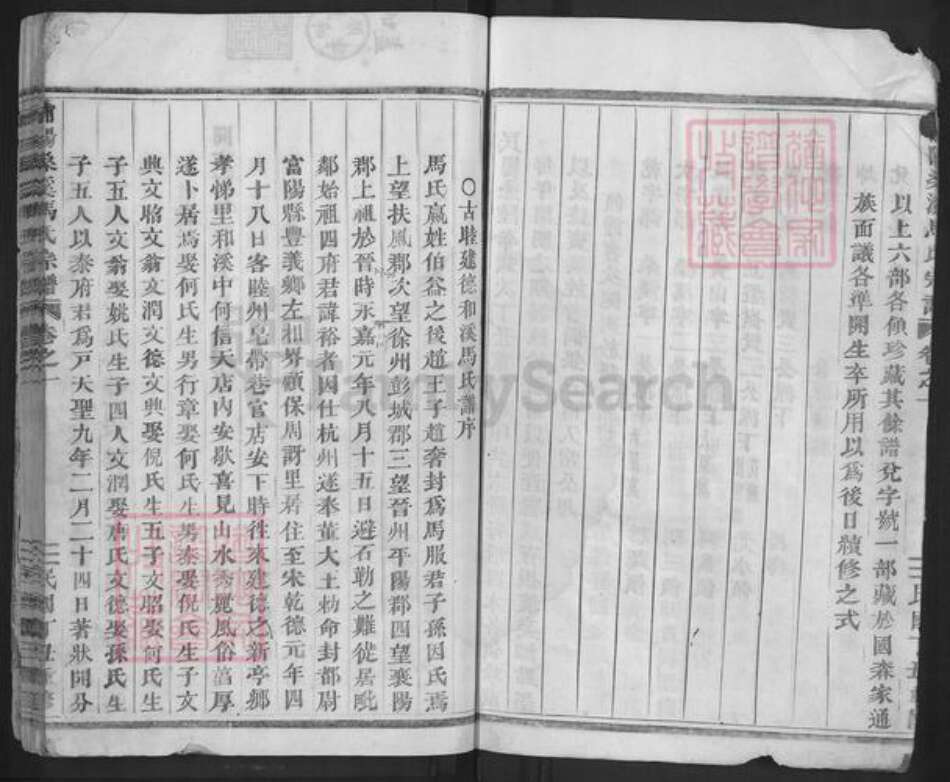 以上六部各傾珍藏其餘譜兌字號一部藏於國森家通
族面議各準開生卒所用以為後日續修之式
○古睦建德和溪馬氏譜序
馬氏嬴姓伯益之後趙王子趙奢封為馬服君子孫因氏焉
上望扶風郡次望徐州彭城郡三望晉州平陽郡四望襄陽
郡上祖於晉時永嘉元年八月十五日避石勒之難徙居毗
鄰始祖四府君諱裕者因仕杭州遂奉董大王勅命封都尉
富陽縣豐義鄉左相界顧保周訝里居住至宋乾德元年四
月十八日客睦州皂帶巷官店安下時往來建德之新亭鄉
孝悌里和溪中何信大店內安歇喜見山水秀麗風俗淳厚
遂卜居焉娶何氏生男行章娶何氏生男泰娶倪氏生子文
典文昭文翁文潤文德文典娶倪氏生五子文昭娶何氏生
子五人文翁娶姚氏生子四人文潤娶唐氏文德娶孫氏生
子五人以泰府君為戶天聖九年二月二十四日著狀開分
馬氏宗譜
卷之一
FamilySearch